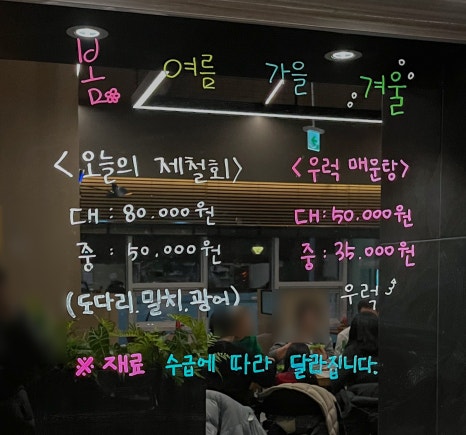 봄 여름 가을 겨울
<오늘의 제철회> <우럭 매운탕>
대 : 80.000원 대 : 50.000원
중 : 50.000원 중 : 35.000원
(도다리.밀치.광어) 우럭
※ 재료 수급에 따라 달라집니다.